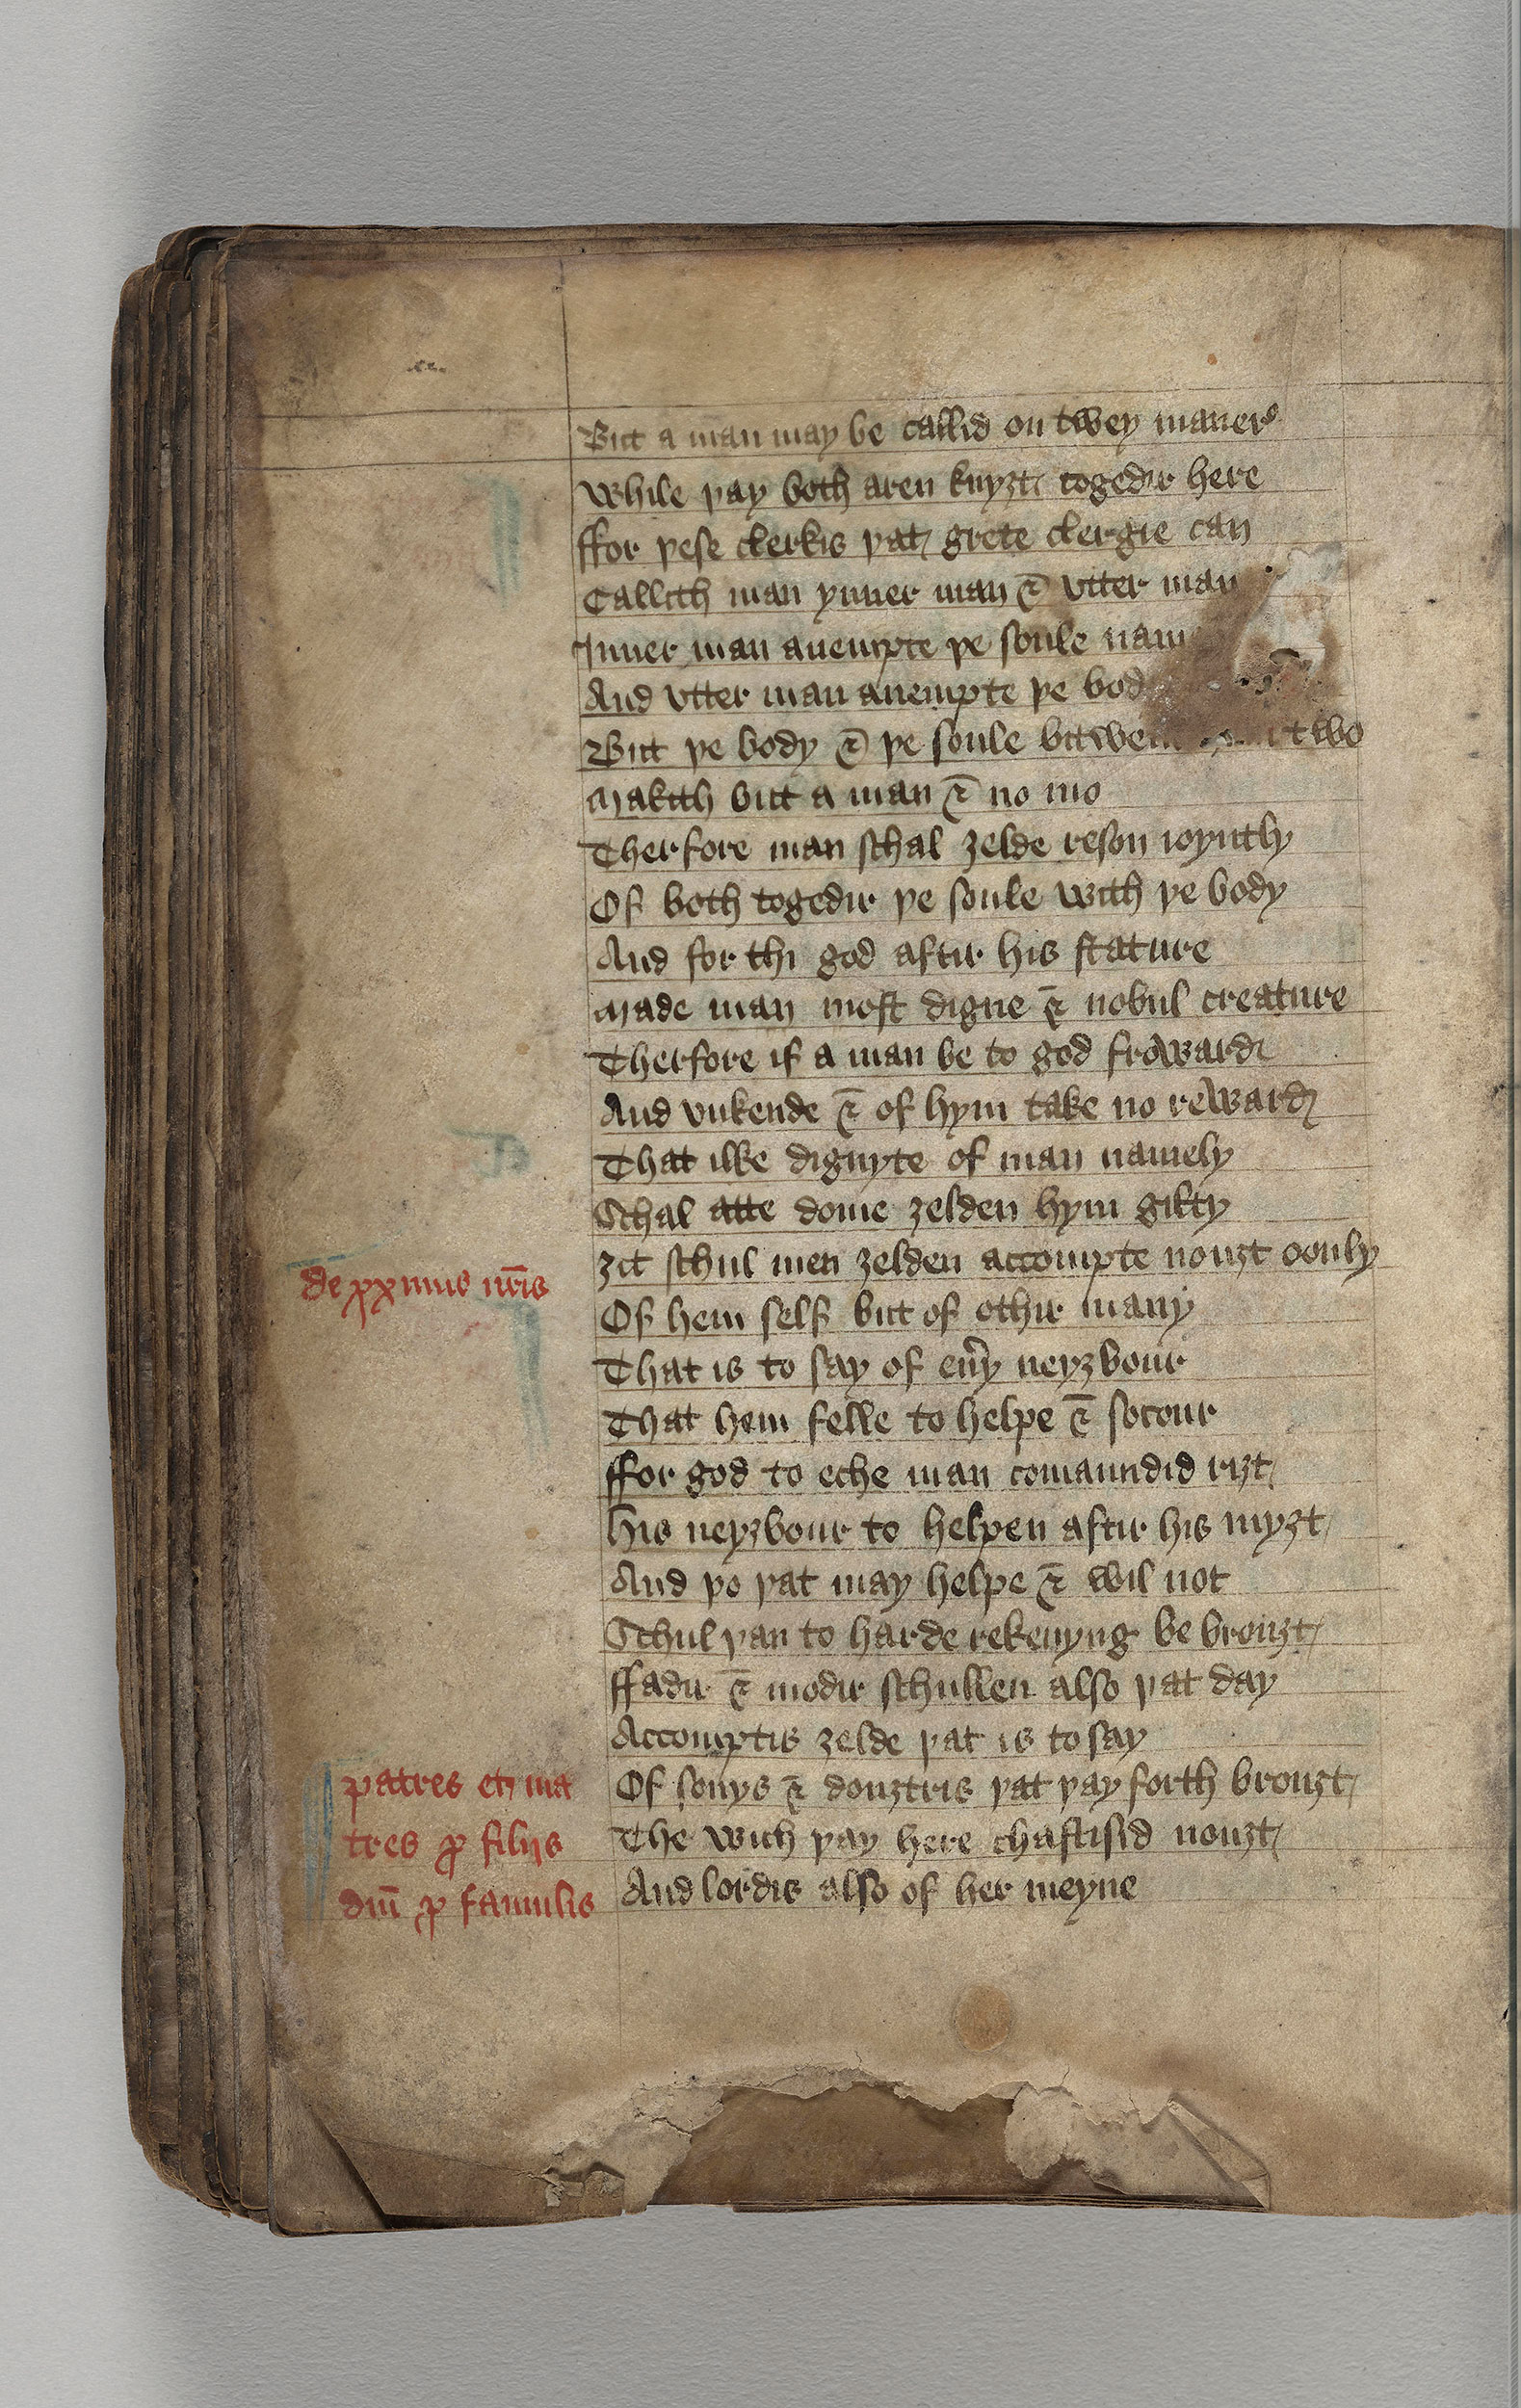 But a man may be callid on twey maner
While þay both aren knyȝt togedir here
ffor þese clerkis þat grete clergie can
Callith man ynner man & vtter man
Inner man anempte þe soule
And vtter man anempte þe
But þe body & þe soule two
Makith but a man & no mo
Therfore man schal ȝelde reson ioyntly
Of both togedir þe soule with þe body
And for thi god aftir his stature
Made man most digne & nobul creature
Therfore if a man be to god froward
And vnkende & of hym take no reward
That ilke dignyte of man namely
Schal atte dome ȝelden hym gilty
de p̱ximis nr̄is
Ȝit schul men ȝelden accompte nouȝt oonly
Of hem self but of othir many
That is to say of eu̅y neyȝbour
That hem felle to helpe & socour
ffor god to eche man comaundid riȝt
His neyȝbour to helpen aftir his myȝt
And þo þat may helpe & wil not
Schul þan to harde rekenyng be brouȝt
ffadir & modir schullen also þat day
Accomptis ȝelde þat is to say
patres et ma
Of sonys & douȝtris þat þay forth brouȝt
tres ꝓ filijs
The wich þay here chastisid nouȝt
dn̄i ꝓ famulis
And lordis also of her meyne